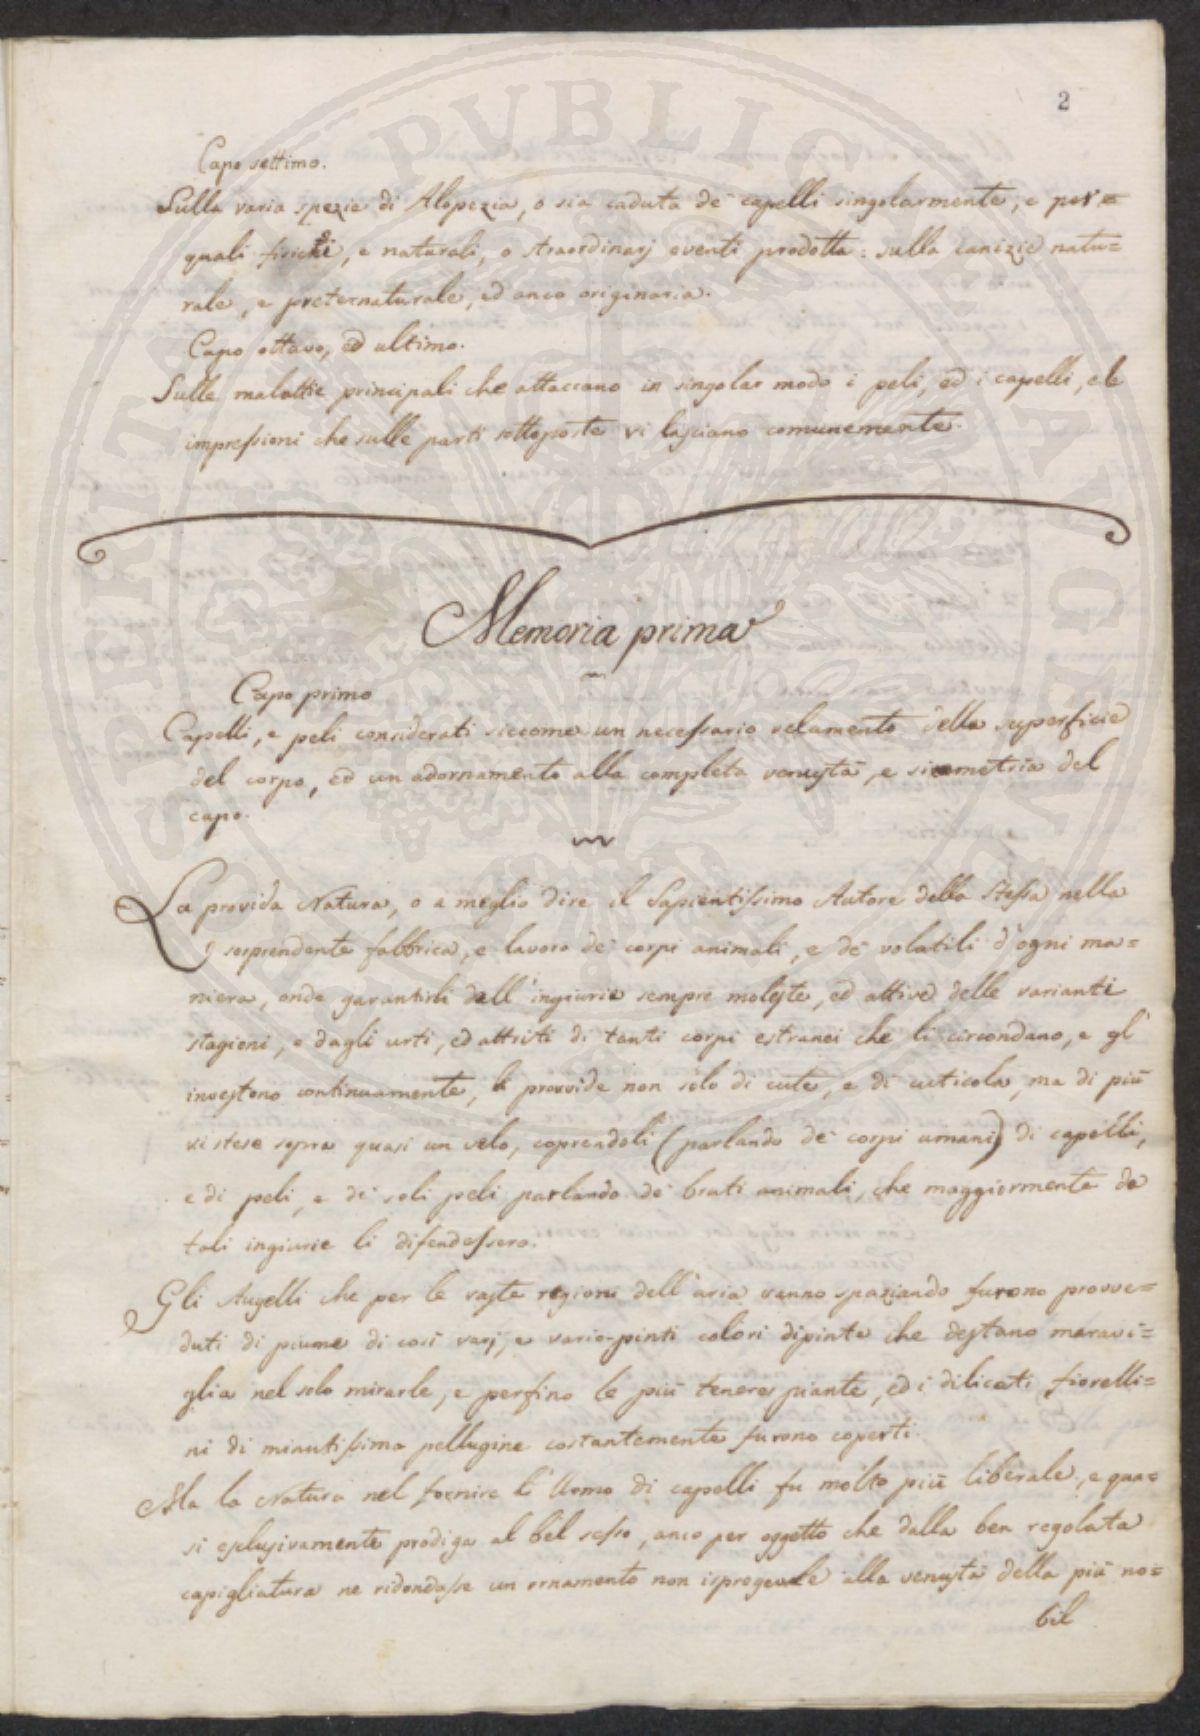 2
Capo settimo.
Sulla varia spezie di Alopezia, o sia caduta de' capelli singolarmente, e per
quali fisichi, e naturali, o straordinarj eventi prodotta: sulla canizie natu=
rale, e preternaturale, ed anco originaria.
Capo ottavo, ed ultimo.
Sulle malattie principali che attaccano in singolar modo i peli, ed i capelli, e le
impressioni che sulle parti sottoposte vi lasciano comunemente.
Memoria prima
Capo primo
Capelli, e peli considerati siccome un necessario velamento della superficie
del corpo, ed un adornamento alla completa venustà, e simmetria del
capo.
La provida Natura, o a meglio dire il Sapientissimo Autore della stessa nella
sorprendente fabbrica, e lavoro de' corpi animali, e de' volatili d'ogni ma=
niera, onde garantirli dall'ingiurie sempre moleste, ed attive delle varianti
stagioni, e dagli urti, ed attriti di tanti corpi estranei che li circondano, e gl'
investono continuamente, li provvide non solo di cute, e di cuticola, ma di più
vi stese sopra quasi un velo, coprendoli (parlando de' corpi umani) di capelli,
e di peli, e di soli peli parlando de' bruti animali, che maggiormente da
tali ingiurie li difendessero.
Gli Augelli che per le vaste regioni dell'aria vanno spaziando furono provve=
duti di piume di così varj, e vario-pinti colori dipinte che destano maravi=
glia nel solo mirarle, e perfino le più tenere piante, ed i dilicati fiorelli=
ni di minutissima pellugine costantemente furono coperti.
Ma la Natura nel fornire l'Uomo di capelli fu molto più liberale, e qua=
si esclusivamente prodiga al bel sesso, anco per oggetto che dalla ben regolata
capigliatura ne ridondasse un ornamento non ispregevole alla venustà della più no=
bil